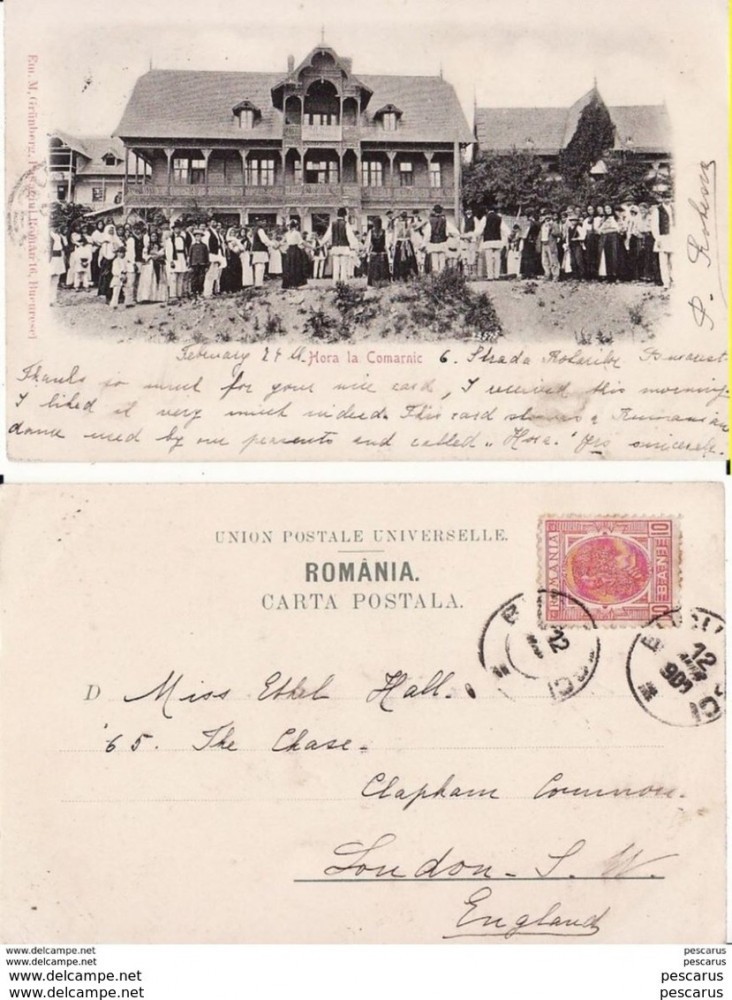 Em. M. Grünberg, Român 16, Bucuresci
February 27 th. Hora la Comarnic 6. Strada
Thanks so much for your nice card, I received this morning.
I liked it very much indeed. This card shows a Rumanian
dance used by our peasants and called "Hora." Yrs sincerely.
P.
UNION POSTALE UNIVERSELLE.
ROMÂNIA.
CARTA POSTALA.
ROMANIA
10
10
D Miss Ethel Hall.
65. The Chase-
Clapham Common.
London - S. W.
England
12
12
901
delcampe.net
delcampe.net
pescarus
pescarus
delcampe.net
delcampe.net
pescarus
pescarus